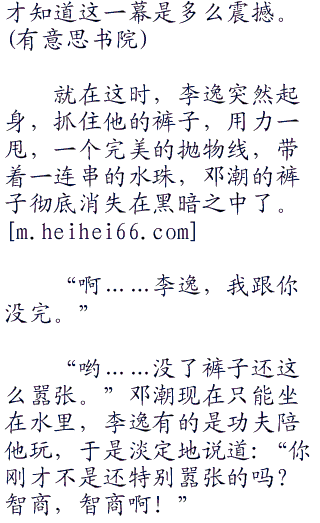 才知道这一幕是多么震撼。
(有意思书院)
就在这时，李逸突然起
身，抓住他的裤子，用力一
甩，一个完美的抛物线，带
着一连串的水珠，邓潮的裤
子彻底消失在黑暗之中了。
[m.heihei66.com]
“啊……李逸，我跟你
没完。”
“哟……没了裤子还这
么嚣张。”邓潮现在只能坐
在水里，李逸有的是功夫陪
他玩，于是淡定地说道：“你
刚才不是还特别嚣张的吗？
智商，智商啊！”